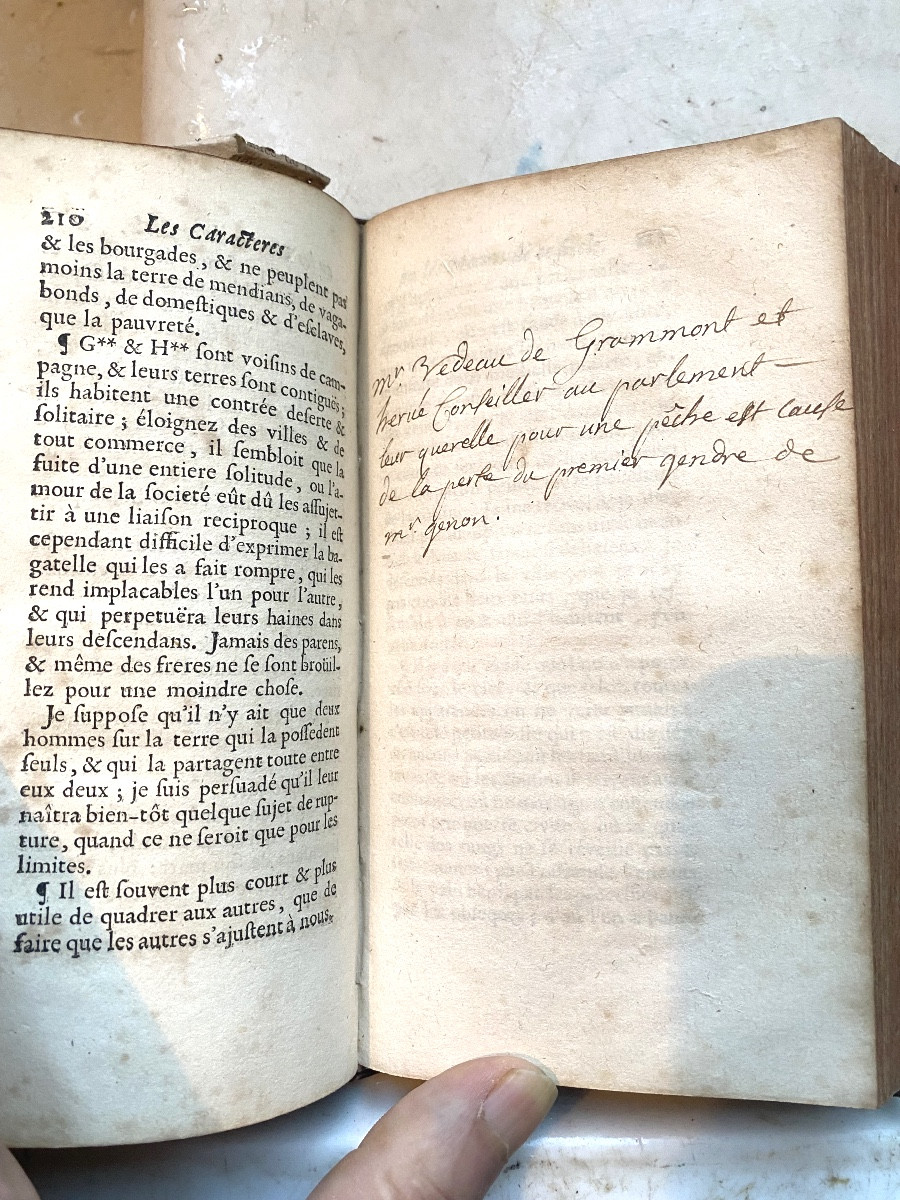 210 Les Caracteres
& les bourgades, & ne peuplent pas
moins la terre de mendians, de vaga-
bonds, de domeſtiques & d'eſclaves,
que la pauvreté.
¶ G** & H** ſont voiſins de cam-
pagne, & leurs terres ſont contiguës;
ils habitent une contrée deſerte &
ſolitaire; éloignez des villes & de
tout commerce, il ſembloit que la
fuite d'une entiere ſolitude, ou l'a-
mour de la ſocieté eût dû les aſſujet-
tir à une liaiſon reciproque; il eſt
cependant difficile d'exprimer la ba-
gatelle qui les a fait rompre, qui les
rend implacables l'un pour l'autre,
& qui perpetuëra leurs haines dans
leurs deſcendans. Jamais des parens,
& même des freres ne ſe ſont broüil-
lez pour une moindre choſe.
Je ſuppoſe qu'il n'y ait que deux
hommes ſur la terre qui la poſſedent
ſeuls, & qui la partagent toute entre
eux deux; je ſuis perſuadé qu'il leur
naîtra bien-tôt quelque ſujet de rup-
ture, quand ce ne ſeroit que pour les
limites.
¶ Il eſt ſouvent plus court & plus
utile de quadrer aux autres, que de
faire que les autres s'ajuſtent à nous.
mr. Vedeau de Grammont et
herué Conſeiller au parlement
leur querelle pour une pêche eſt cauſe
de la perte du premier gendre de
mr. genon.